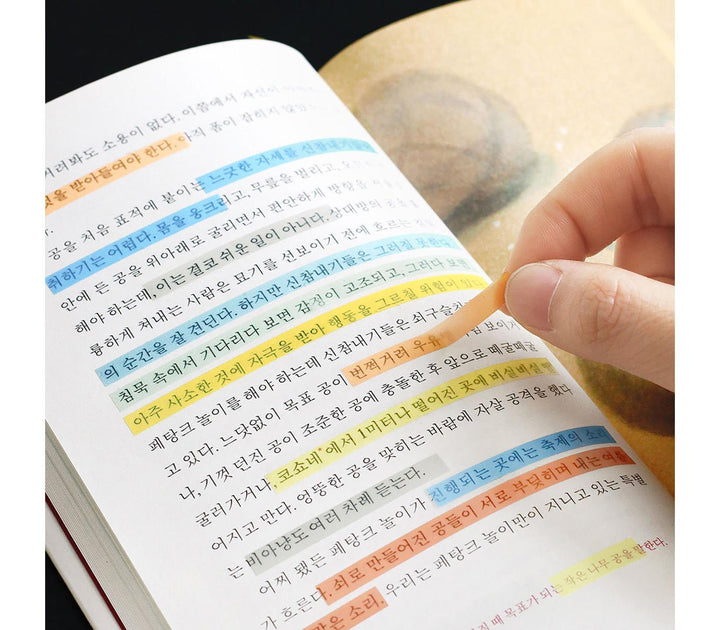 거려봐도 소용이 없다. 이쯤에서 자신이
것을 받아들여야 한다. 아직 폼이 잡히지 않았
공을 처음 표적에 붙이는 느긋한 자세를 신참내기들이
취하기는 어렵다. 몸을 웅크리고, 무릎을 벌리고,
안에 든 공을 위아래로 굴리면서 편안하게 방향을
해야 하는데, 이는 결코 쉬운 일이 아니다. 상대방의 공을
륭하게 쳐내는 사람은 묘기를 선보이기 전에 흐르는
의 순간을 잘 견딘다. 하지만 신참내기들은 그러질 못한다.
침묵 속에서 기다리다 보면 감정이 고조되고, 그러다 보면
아주 사소한 것에 자극을 받아 행동을 그르칠 위험이 있
페탕크 놀이를 해야 하는데 신참내기들은 쇠구슬
고 있다. 느닷없이 목표 공이 번쩍거려 우유 보이기
나, 기껏 던진 공이 조준한 공에 충돌한 후 앞으로 떼굴떼굴
굴러가거나, 코쇼네*에서 1미터나 떨어진 곳에 비실비실
어지고 만다. 엉뚱한 공을 맞히는 바람에 자살 공격을 했다
는 비아냥도 여러 차례 듣는다.
어찌 됐든 페탕크 놀이가 진행되는 곳에는 축제의
가 흐른다. 쇠로 만들어진 공들이 서로 부딪히며 내는
같은 소리. 우리는 페탕크 놀이만이 지니고 있는 특별
때 목표가 되는 작은 나무 공을 말한다.